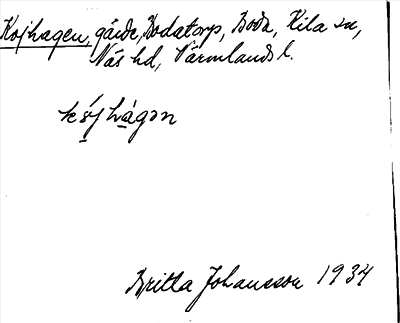 Kojhagen, gärde, Bodatorp, Boda, Kila sn,
Näs hd, Värmlands l.
kó̤jhàgən
Britta Johansson 1934